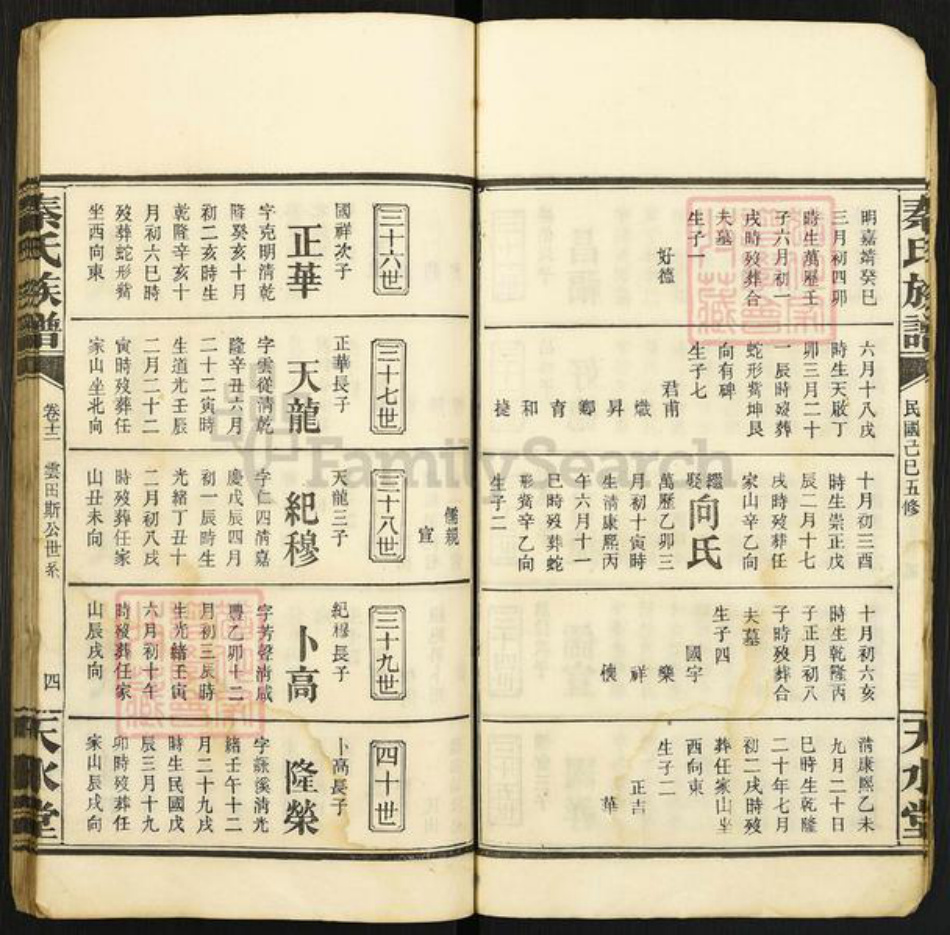 秦氏族譜
民國己巳五修
天水堂
明嘉靖癸巳
三月初四卯
時生萬歷壬
子六月初一
戌時歿葬合
夫墓
生子一
好德
六月十八戌
時生天啟丁
卯三月二十
一辰時歿葬
蛇形嘴坤艮
向有碑
生子七
君甫
熾
昇
卿
育
和
捷
十月初三酉
時生崇正戊
辰二月十七
戌時歿葬任
家山辛乙向
繼娶
向氏
萬歷乙卯三
月初十寅時
生清康熙丙
午六月十一
巳時歿葬蛇
形嘴辛乙向
生子二
十月初六亥
時生乾隆丙
子正月初八
子時歿葬合
夫墓
生子四
國字
樂
祥
懷
清康熙乙未
九月二十日
巳時生乾隆
二十年七月
初二戌時歿
葬任家山坐
西向東
生子二
正吉
華
三十六世
國祥次子
正華
字克明清乾
隆癸亥十月
初二亥時生
乾隆辛亥十
月初六巳時
歿葬蛇形嘴
坐西向東
三十七世
正華長子
天龍
字雲從清乾
隆辛丑六月
二十二寅時
生道光壬辰
二月二十二
寅時歿葬任
家山坐北向
儒親
宣
三十八世
天龍三子
紀穆
字仁四清嘉
慶戊辰四月
初一辰時生
光緒丁丑十
二月初八戌
時歿葬任家
山丑未向
三十九世
紀穆長子
卜高
字芳聲清咸
豐乙卯十二
月初三辰時
生光緒壬寅
六月初十午
時歿葬任家
山辰戌向
四十世
卜高長子
隆榮
字詠溪清光
緒壬午十二
月二十九戌
時生民國戊
辰三月十九
卯時歿葬任
家山辰戌向
秦氏族譜
卷十二
雲田斯公世系
四
天水堂
FamilySearch